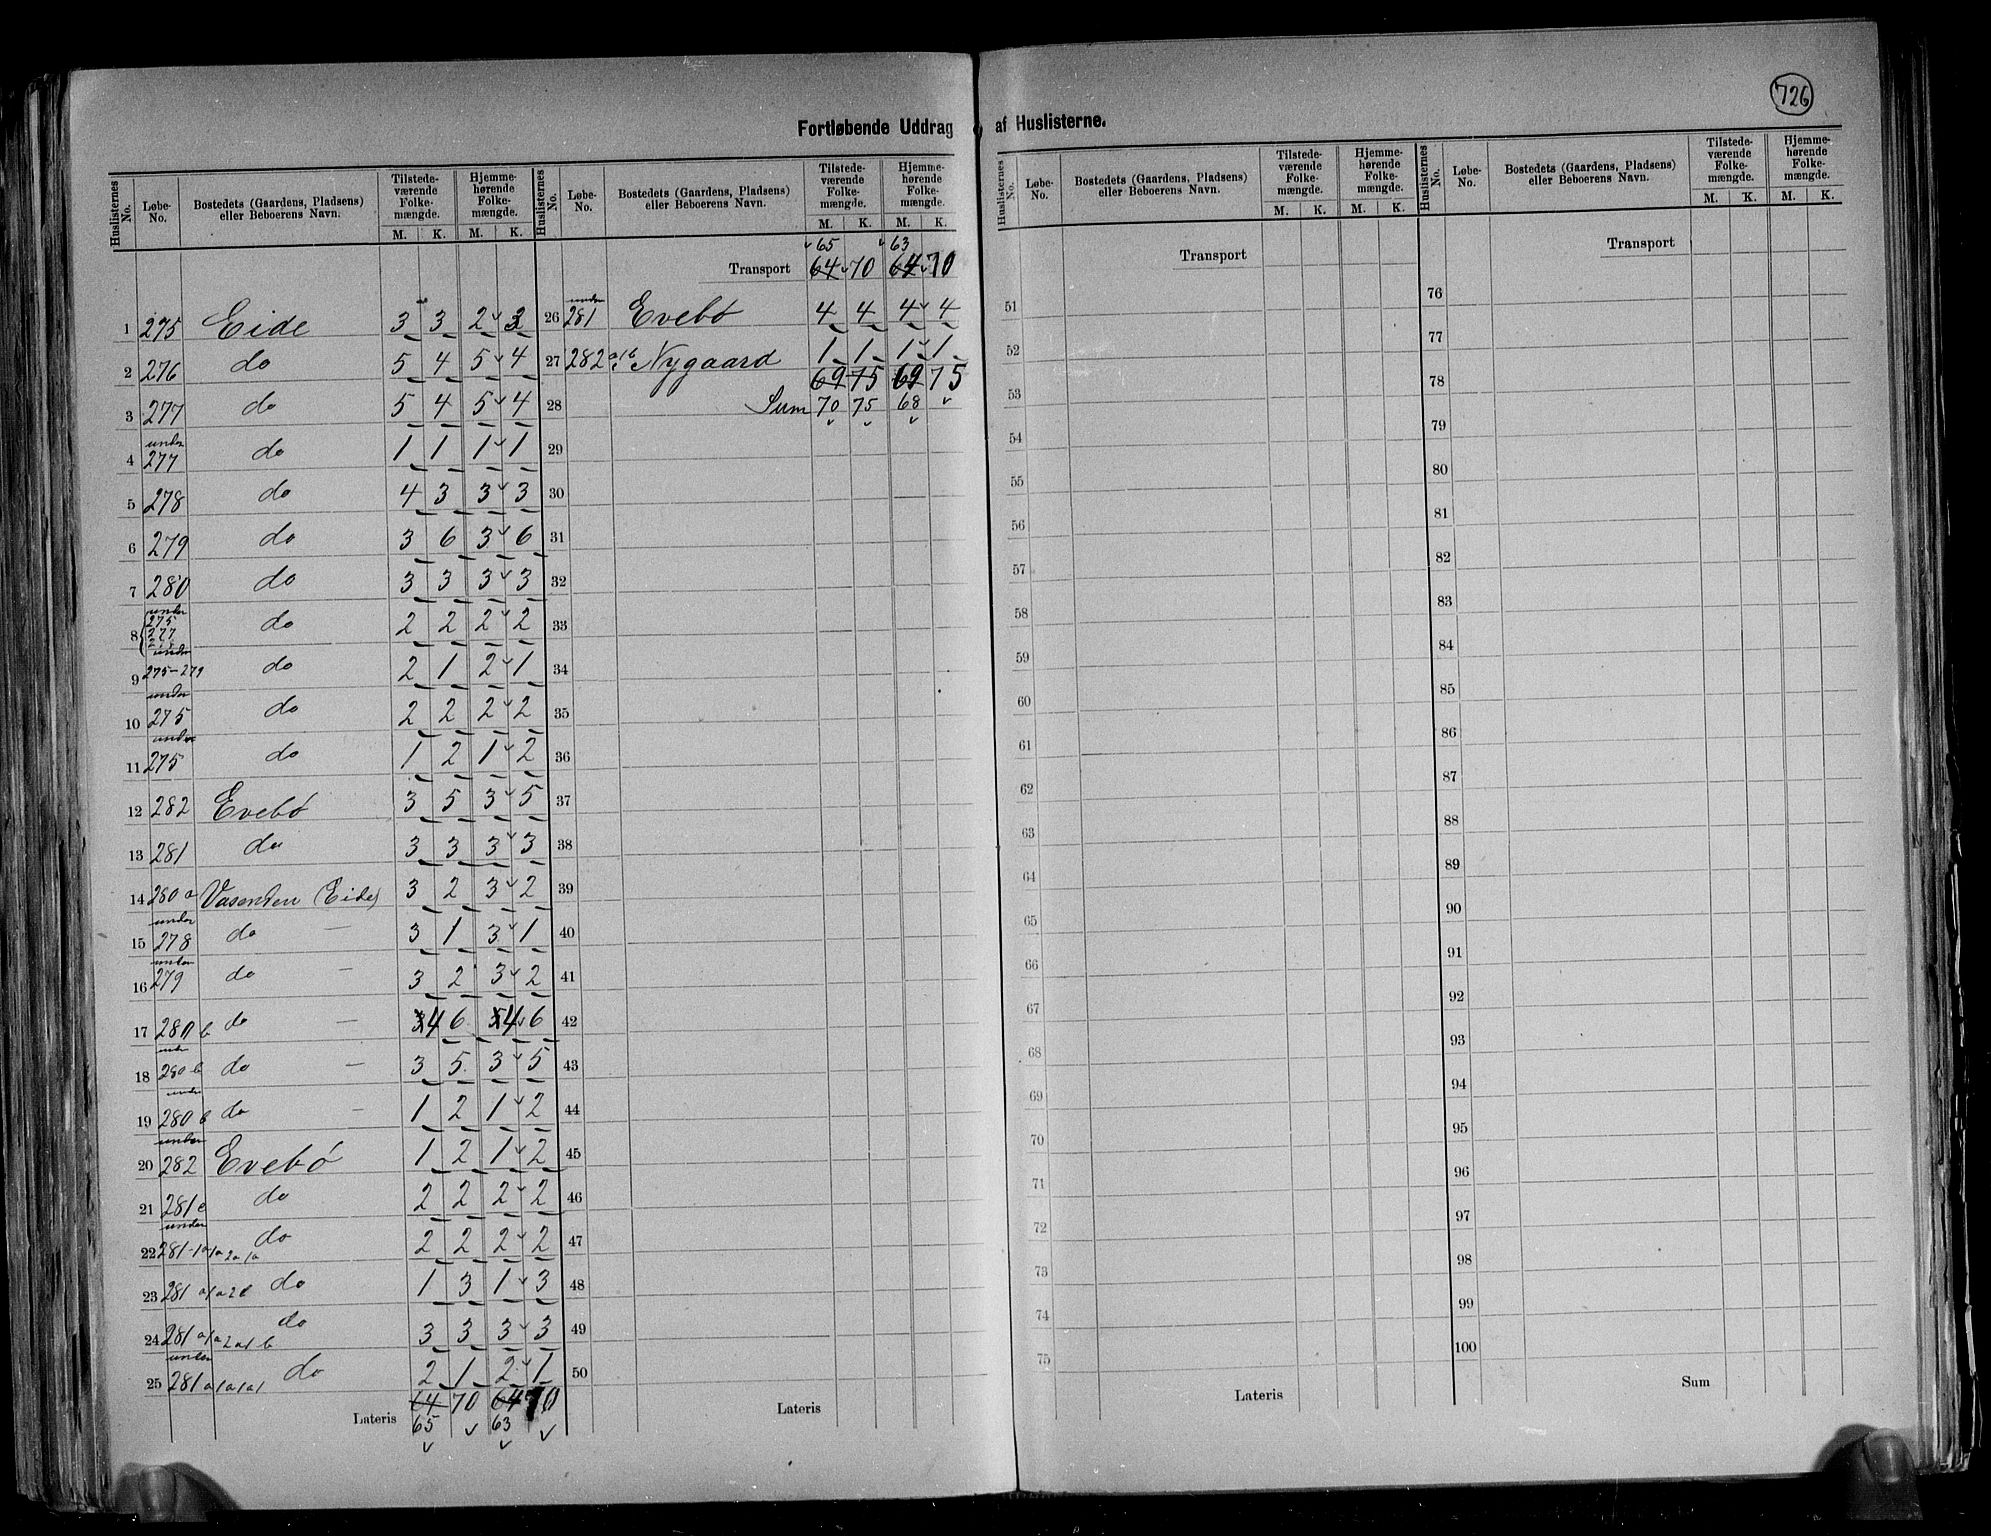 726
Fortløbende Uddrag af Huslisterne.
Huslisternes No. Løbe-No. Bostedets (Gaardens, Pladsens) eller Beboerens Navn. Tilstedeværende Folkemængde. M. K. Hjemmehørende Folkemængde. M. K.
1 275 Eide 3 3 2 3
2 276 do 5 4 5 4
3 277 do 5 4 5 4
4 under 277 do 1 1 1 1
5 278 do 4 3 3 3
6 279 do 3 6 3 6
7 280 do 3 3 3 3
8 under 275 277 do 2 2 2 2
9 under 275-279 do 2 1 2 1
10 under 275 do 2 2 2 2
11 under 275 do 1 2 1 2
12 282 Evebø 3 5 3 5
13 281 do 3 3 3 3
14 280 a Vasenden (Eide) 3 2 3 2
15 under 278 do — 3 1 3 1
16 under 279 do — 3 2 3 2
17 280 b do — 4 6 4 6
18 under 280 b do — 3 5 3 5
19 under 280 b do — 1 2 1 2
20 under 282 Evebø 1 2 1 2
21 281 e do 2 2 2 2
22 under 281 do 2 2 2 2
23 281 do 1 3 1 3
24 281 do 3 3 3 3
25 under 281 do 2 1 2 1
Lateris 64 70 64 70
65 63
Huslisternes No. Løbe-No. Bostedets (Gaardens, Pladsens) eller Beboerens Navn. Tilstedeværende Folkemængde. M. K. Hjemmehørende Folkemængde. M. K.
65 63
Transport 64 70 64 70
26 under 281 Evebø 4 4 4 4
27 282 Nygaard 1 1 1 1
69 75 69 75
28 Sum 70 75 68
29
30
31
32
33
34
35
36
37
38
39
40
41
42
43
44
45
46
47
48
49
50
Lateris
Huslisternes No. Løbe-No. Bostedets (Gaardens, Pladsens) eller Beboerens Navn. Tilstedeværende Folkemængde. M. K. Hjemmehørende Folkemængde. M. K.
Transport
51
52
53
54
55
56
57
58
59
60
61
62
63
64
65
66
67
68
69
70
71
72
73
74
75
Lateris
Huslisternes No. Løbe-No. Bostedets (Gaardens, Pladsens) eller Beboerens Navn. Tilstedeværende Folkemængde. M. K. Hjemmehørende Folkemængde. M. K.
Transport
76
77
78
79
80
81
82
83
84
85
86
87
88
89
90
91
92
93
94
95
96
97
98
99
100
Sum